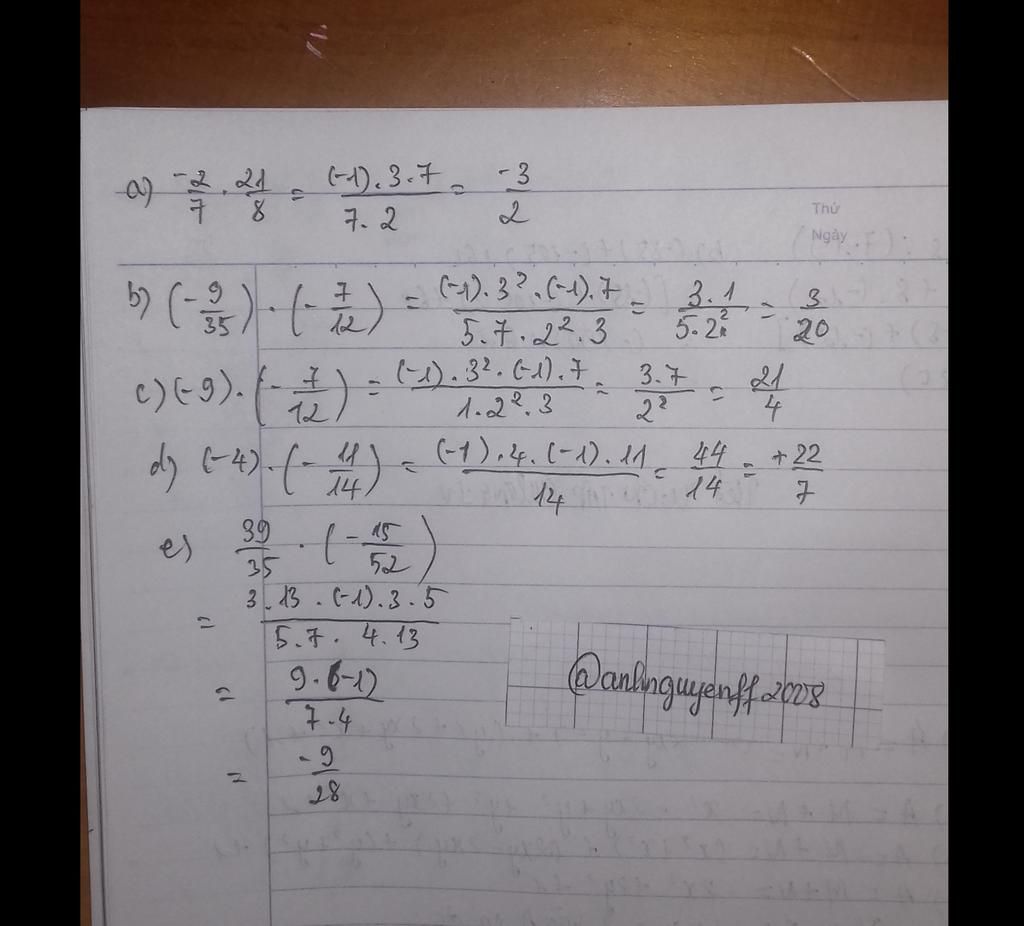 a) -2/7 . 21/8 = (-1).3.7/7.2 = -3/2
Thứ
Ngày
b) (-9/35) . (-7/12) = (-1).3².(-1).7/5.7.2².3 = 3.1/5.2² = 3/20
c) (-9).(-7/12) = (-1).3².(-1).7/1.2².3 = 3.7/2² = 21/4
d) (-4).(-11/14) = (-1).4.(-1).11/14 = 44/14 = +22/7
e) 39/35 . (-15/52)
= 3.13.(-1).3.5/5.7.4.13
= 9.(-1)/7.4
= -9/28
@anhnguyenff2008